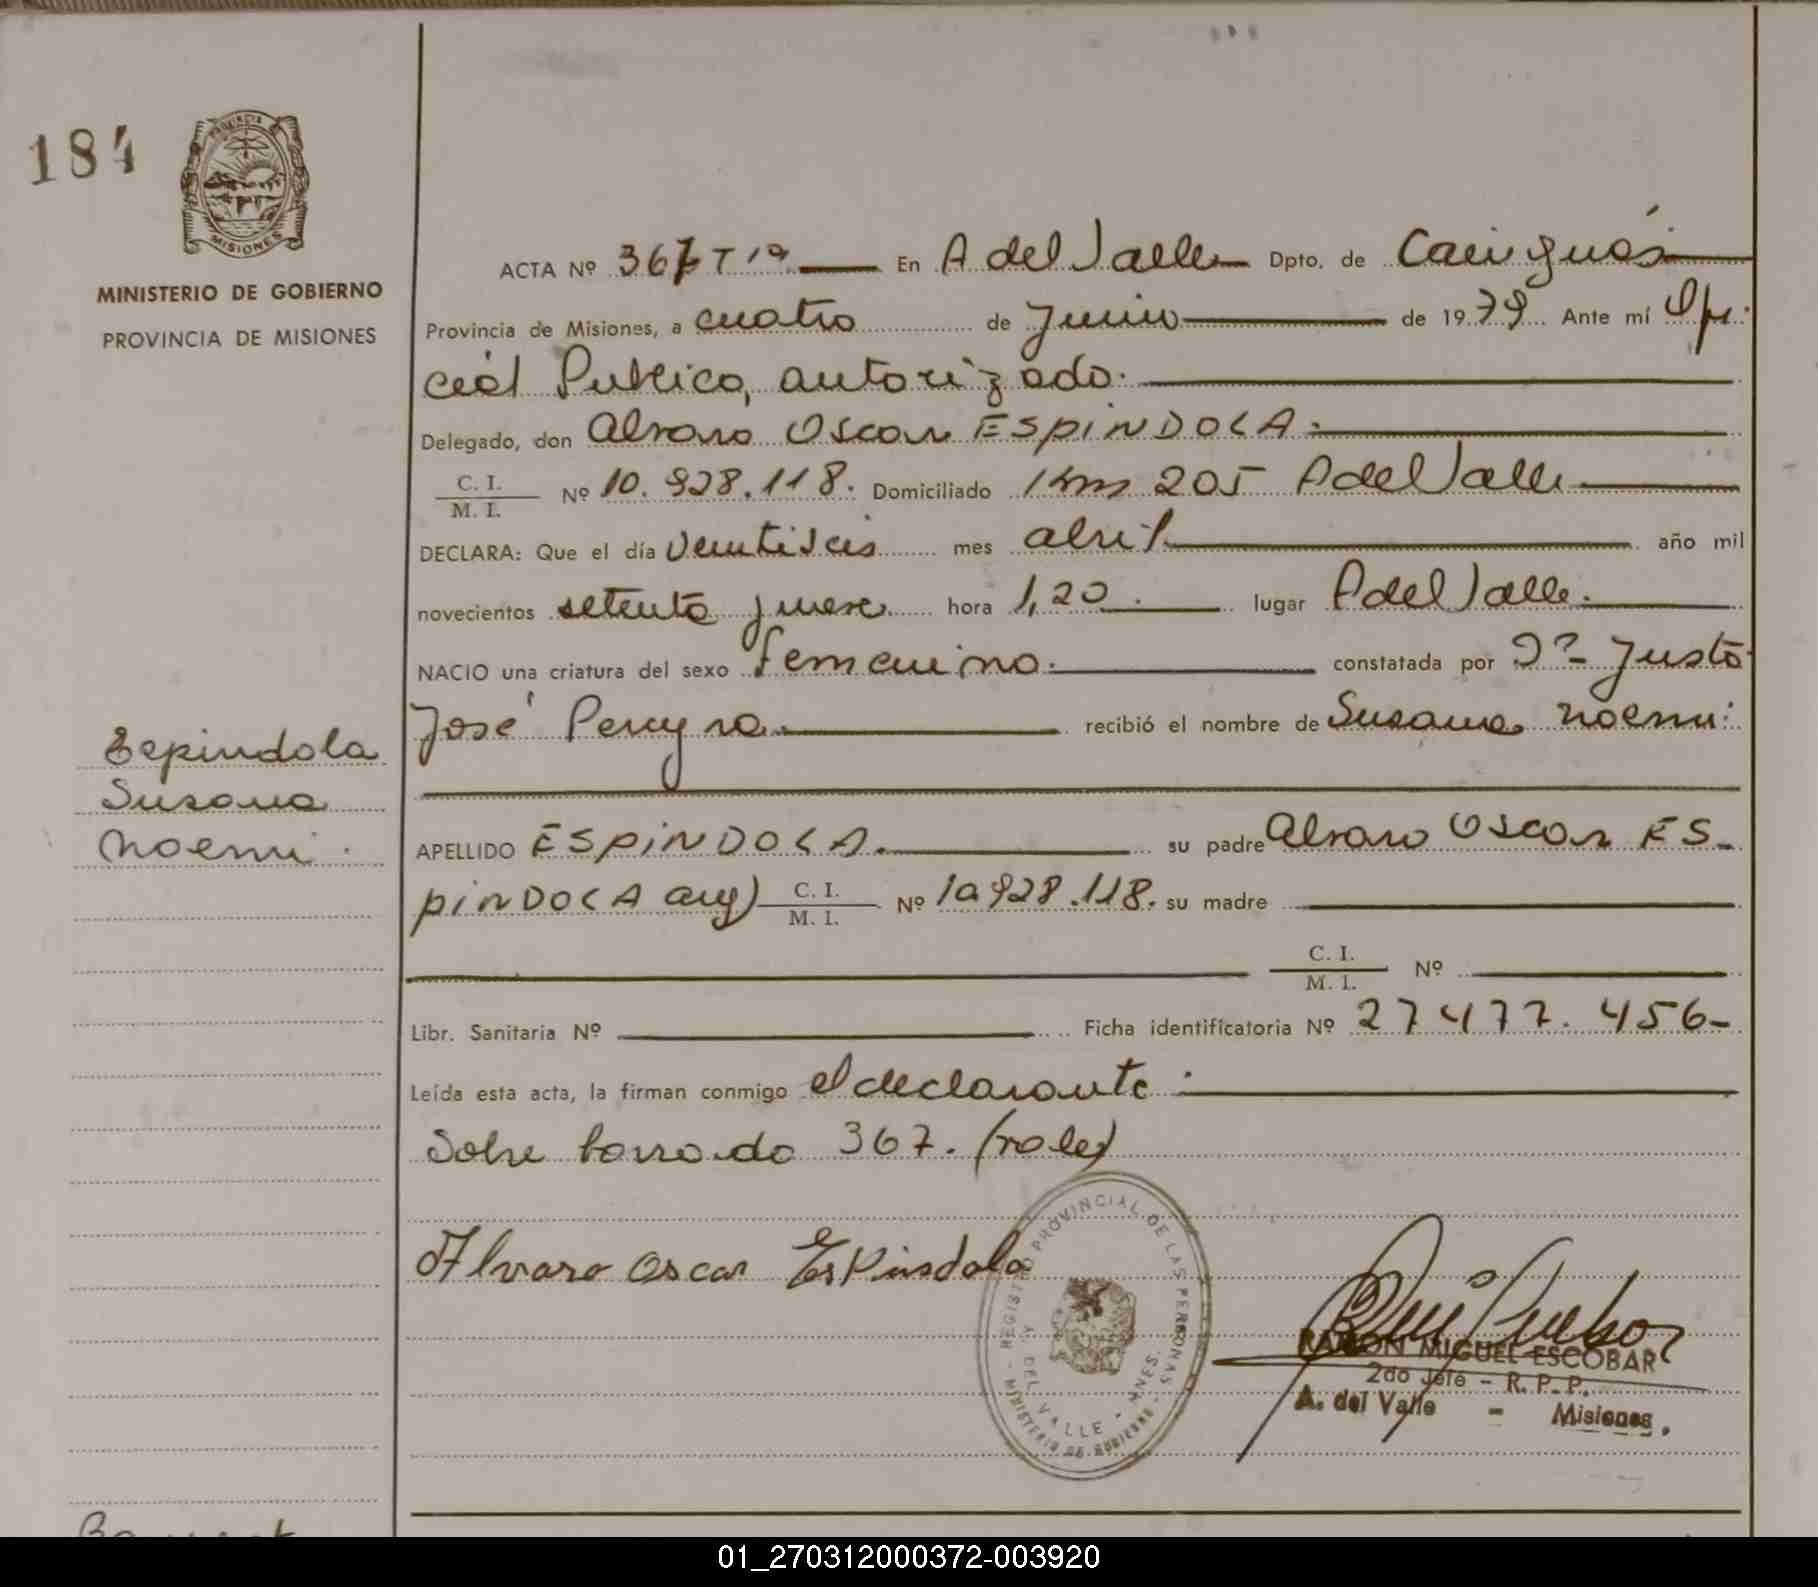 184
PROVINCIA
MISIONES
MINISTERIO DE GOBIERNO
PROVINCIA DE MISIONES
ACTA Nº 367 Tº 1º En A del Valle Dpto. de Cainguás
Provincia de Misiones, a cuatro de Junio de 1979 Ante mí Ofi
cial Publico, autorizado.
Delegado, don Alvaro Oscar ESPINDOLA.
C. I.
M. I. Nº 10.928.118. Domiciliado Km 205 A del Valle
DECLARA: Que el día veintiseis mes abril año mil
novecientos setenta y nueve hora 1,20. lugar A del Valle.
NACIO una criatura del sexo femenino. constatada por Dº Justo
José Pereyra. recibió el nombre de Susana Noemi.
APELLIDO ESPINDOLA. su padre Alvaro Oscar ES-
PINDOLA arg) C. I.
M. I. Nº 10.928.118. su madre
C. I.
M. I. Nº
Libr. Sanitaria Nº Ficha identificatoria Nº 27477.456-
Leída esta acta, la firman conmigo el declarante.
Sobre borrado 367. (vale)
Espindola
Susana
Noemi.
Alvaro Oscar Espindola
REGISTRO PROVINCIAL DE LAS PERSONAS
A. DEL VALLE - MNES.
MINISTERIO DE GOBIERNO
RAMON MIGUEL ESCOBAR
2do Jefe - R. P. P.
A. del Valle - Misiones.
01_270312000372-003920